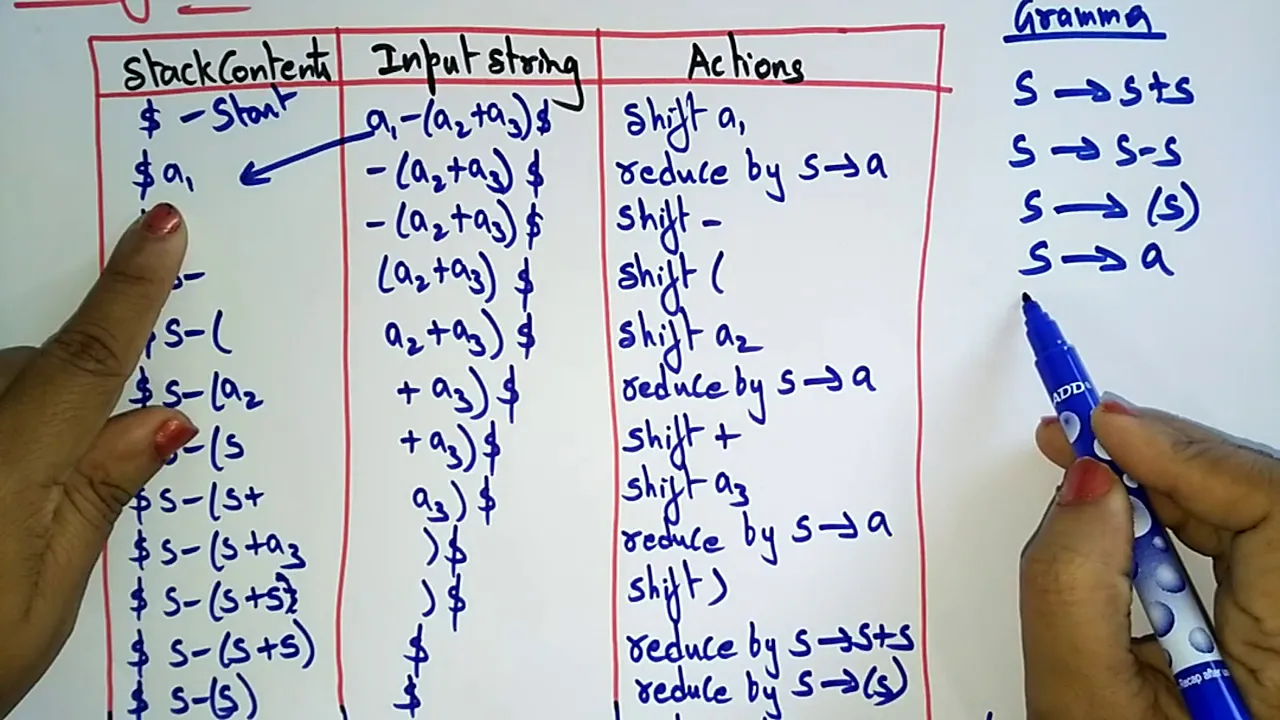 Gramma
Stack Contents Input string Actions
$ - Start a₁-(a₂+a₃)$ shift a₁
$a₁ -(a₂+a₃)$ reduce by S→a
-(a₂+a₃)$ shift -
S- (a₂+a₃)$ shift (
$ S-( a₂+a₃)$ shift a₂
$ S-(a₂ +a₃)$ reduce by S→a
S-(S +a₃)$ shift +
$ S-(S+ a₃)$ shift a₃
$ S-(S+a₃ )$ reduce by S→a
$ S-(S+S )$ shift )
$ S-(S+S) $ reduce by S→S+S
$ S-(S) $ reduce by S→(S)
S → S+S
S → S-S
S → (S)
S → a
ADD
Recap after